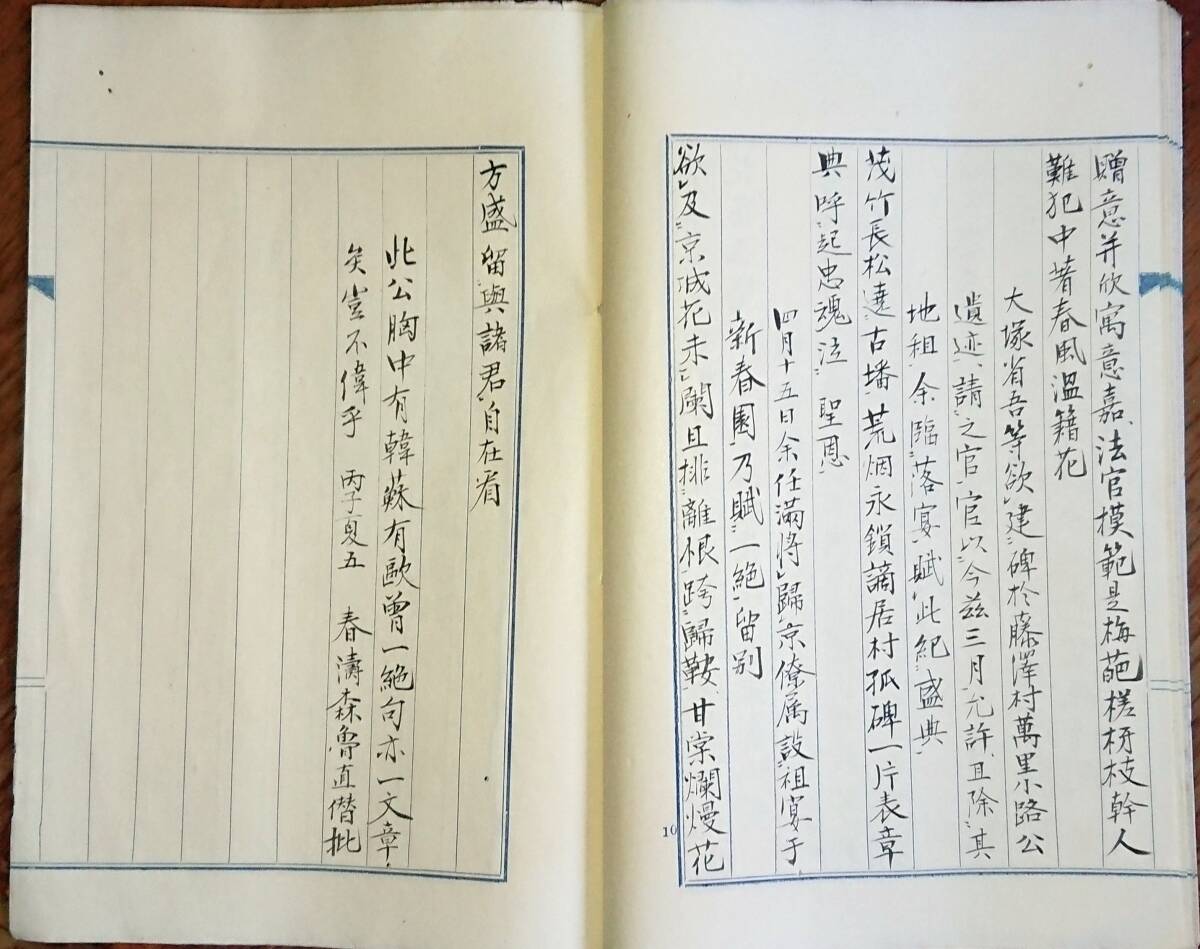 贈意并欣寓意嘉法官模範是梅葩槎枒枝幹人
難犯中著春風溫籍花
大塚省吾等欲建碑於藤澤村萬里小路公
遺迹請之官官以今茲三月允許且除其
地租余臨落宴賦此紀盛典
茂竹長松遶古墦荒烟永鎖謫居村孤碑一片表章
典呼起忠魂泣聖恩
四月十五日余任滿將歸京僚属設祖宴于
新春園乃賦一絶留别
欲及京城花未闌且排離恨跨歸鞍甘棠爛熳花
10
方盛留與諸君自在看
此公胸中有韓蘇有歐曾一絶句亦一文章
矣豈不偉乎 丙子夏五 春濤森魯直僭批